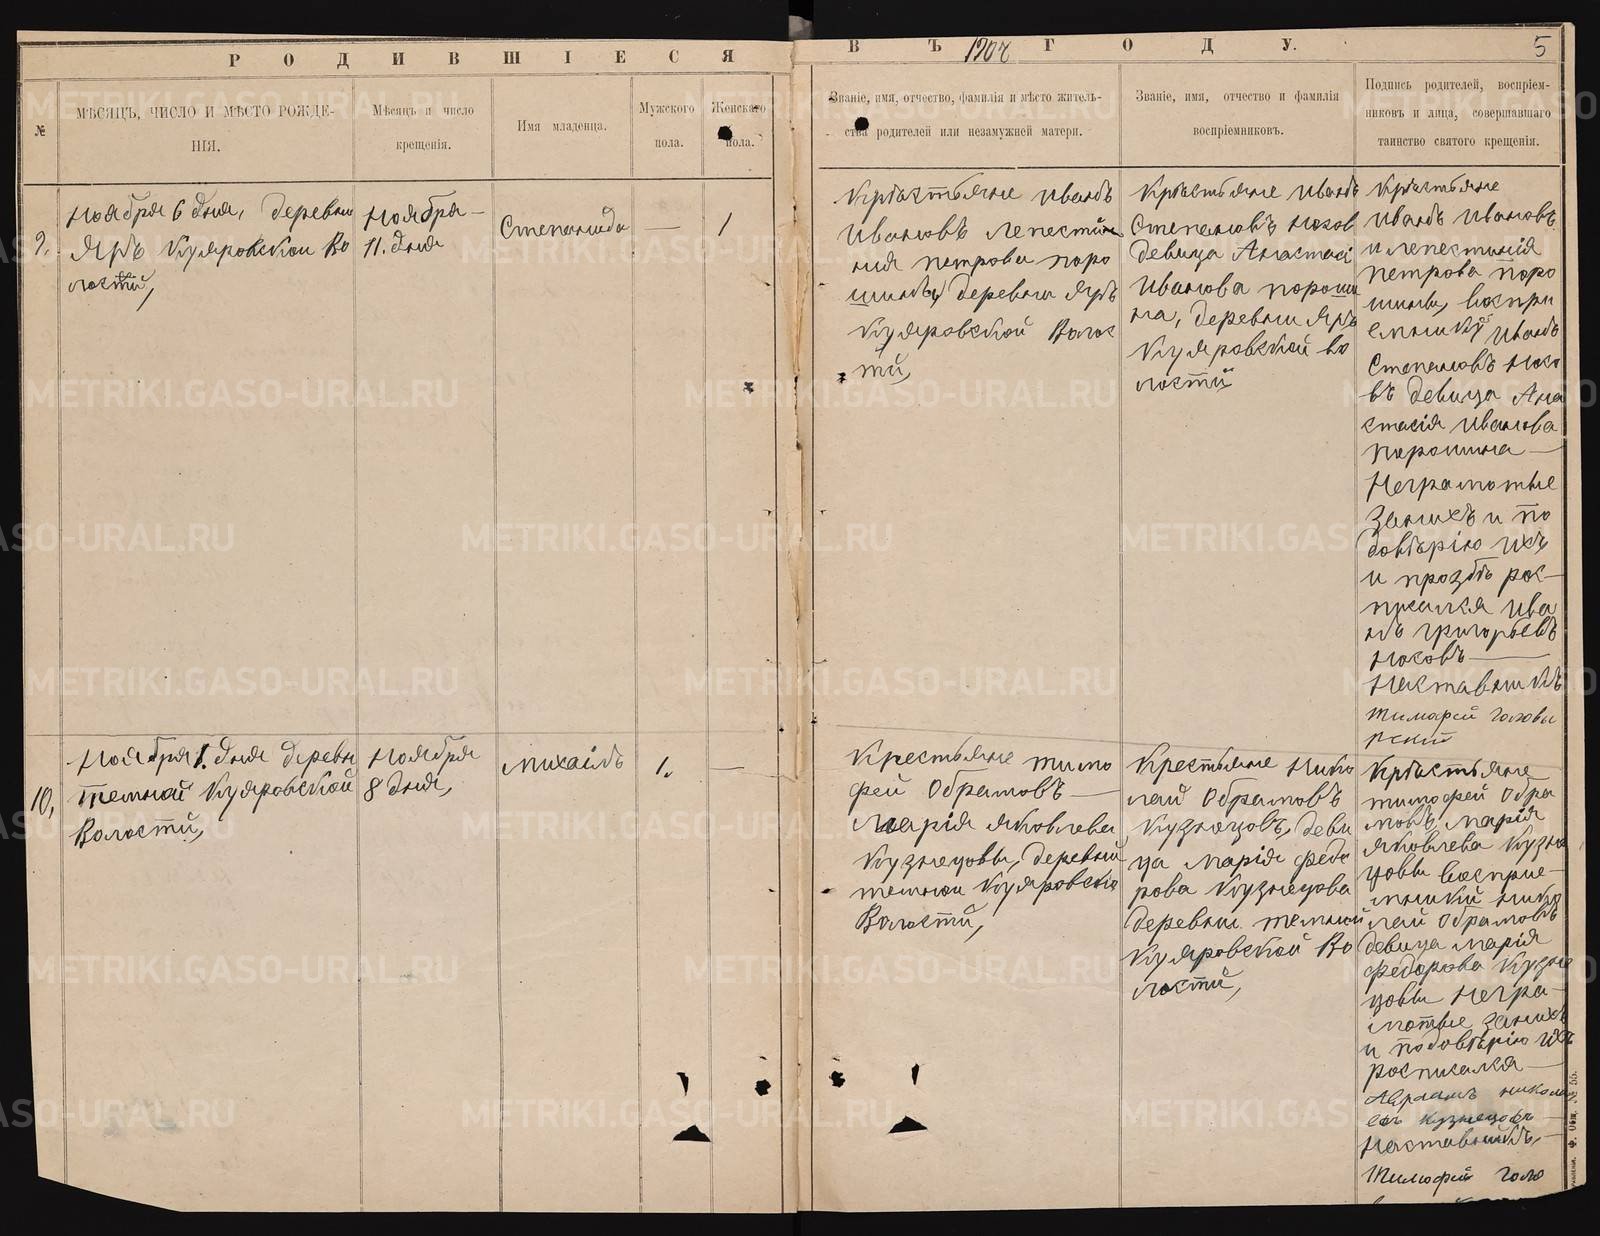 РОДИВШІЕСЯ
ВЪ 1907 ГОДУ.
5
№
МѢСЯЦЪ, ЧИСЛО И МѢСТО РОЖДЕ-
НІЯ.
Мѣсяцъ и число
крещенія.
Имя младенца.
Мужского
пола.
Женскаго
пола.
Званіе, имя, отчество, фамилія и мѣсто житель-
ства родителей или незамужней матери.
Званіе, имя, отчество и фамилія
воспріемниковъ.
Подпись родителей, воспріем-
никовъ и лица, совершавшаго
таинство святого крещенія.
9.
Ноября 6 дня, деревни
Яръ Куяровской Во
лости,
Ноября
11. дня
Степанида
—
1
Крѣстьяне Иванъ
Ивановъ Лепестин
ния петрова поро
шины, деревни Яръ
Куяровской Волос
ти,
Крѣстьяне Иванъ
Степановъ Носов
девица Анастасі
Иванова пороши
на, деревни Яръ
Куяровской во
лости
Крѣстьяне
Иванъ Ивановъ
и лепестинія
петрова поро
шины, воспри
емники Иванъ
Степановъ Носо
въ девица Ана
стасія Иванова
Порошина —
Неграмотные
Заних и по
довѣрію ихъ
и прозбѣ рос-
писался Ива
нъ григорьевъ
Носовъ —
Наставникъ
Тимофей Головы
рский
10,
Ноября 1. дня деревн
темной Куяровской
Волости,
Ноября
8 дня,
михаилъ
1.
—
Крестьяне тимо
фей Обрамовъ —
Марія яковлева
Кузнецовы, деревни
темной Куяровско
Волости,
Крестьяне Нико
лай Обрамовъ
Кузнецовъ, деви
ца марія федо
рова Кузнецова
деревни темной
Куяровской Во
лости,
Крѣстьяне
тимофей Обра
мовъ, марія
яковлева Кузне
цовы воспріе-
мники нико
лай Обрамовъ
девица марія
федорова Кузне
цовы негра-
мотные заних
и подовѣрию ихъ
росписался —
Авраамъ никола
евъ кузнецофъ
Наставникъ, —
Тимофей Голо
METRIKI.GASO-URAL.RU